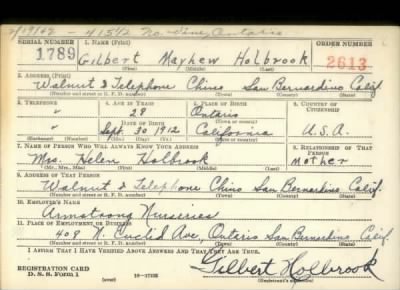 2/19/42 - 415 1/2 No. Vine, Ontario
SERIAL NUMBER 1. NAME (Print) ORDER NUMBER
1789 Gilbert Mayhew Holbrook 2613
(First) (Middle) (Last)
2. ADDRESS (Print)
Walnut & Telephone Chino San Bernardino Calif.
(Number and street or R. F. D. number) (Town) (County) (State)
3. TELEPHONE 4. AGE IN YEARS 5. PLACE OF BIRTH 6. COUNTRY OF CITIZENSHIP
" 28 Ontario
DATE OF BIRTH (Town or county)
" Sept. 30 1912 California U.S.A.
(Exchange) (Number) (Mo.) (Day) (Yr.) (State or country)
7. NAME OF PERSON WHO WILL ALWAYS KNOW YOUR ADDRESS 8. RELATIONSHIP OF THAT PERSON
Mrs. Helen Holbrook Mother
(Mr., Mrs., Miss) (First) (Middle) (Last)
9. ADDRESS OF THAT PERSON
Walnut & Telephone Chino San Bernardino Calif.
(Number and street or R. F. D. number) (Town) (County) (State)
10. EMPLOYER'S NAME
Armstrong Nurseries
11. PLACE OF EMPLOYMENT OR BUSINESS
408 N. Euclid Ave, Ontario San Bernardino Calif.
(Number and street or R. F. D. number) (Town) (County) (State)
I AFFIRM THAT I HAVE VERIFIED ABOVE ANSWERS AND THAT THEY ARE TRUE.
REGISTRATION CARD
D. S. S. FORM 1 (over) 16-17105 Gilbert Holbrook
(Registrant's signature)